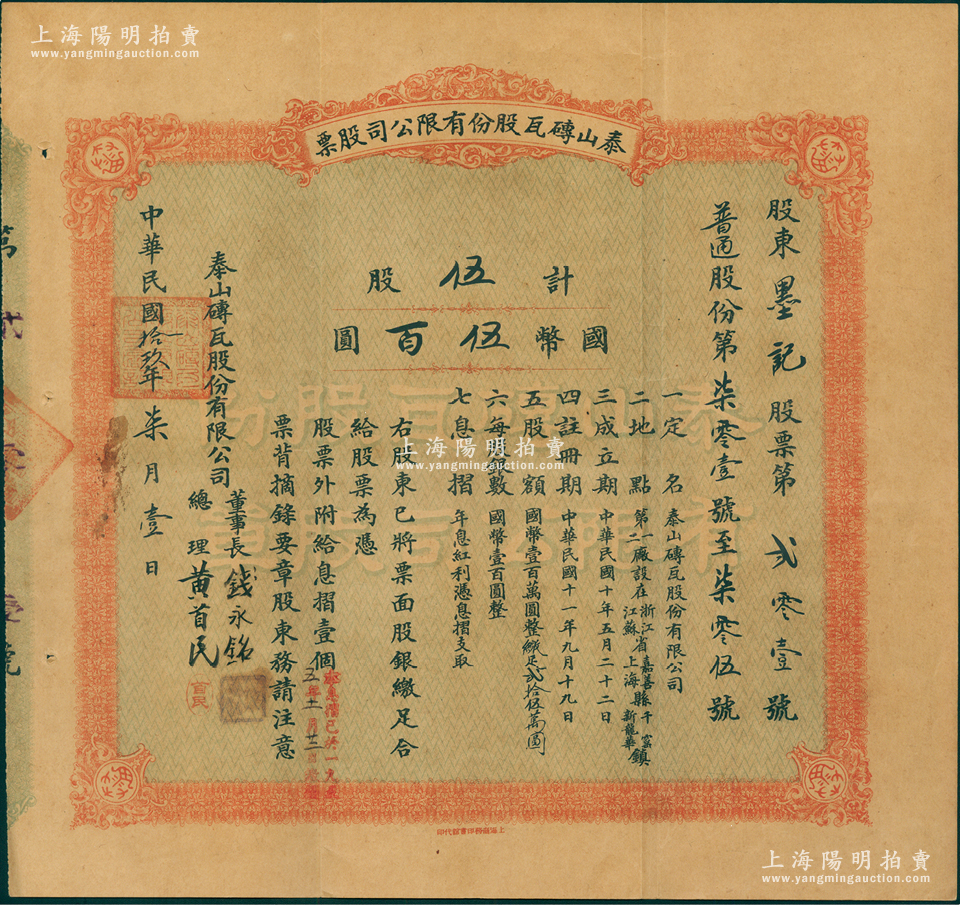 上海陽明拍賣
www.yangmingauction.com
泰山磚瓦股份有限公司股票
股東 墨記 股票第 弍零壹號
普通股份第柒零壹號至柒零伍號
計伍股
國幣伍百圓
一定名 泰山磚瓦股份有限公司
二地點 第一廠設在浙江省嘉善縣干窰鎮 第二廠設在江蘇上海新龍華
三成立期 中華民國十年五月二十二日
四註冊期 中華民國十一年九月十九日
五股額 國幣壹百萬圓整繳足弍拾伍萬圓
六每股銀數 國幣壹百圓整
七息摺 年息紅利憑息摺支取
右股東已將票面股銀繳足合
給股票為憑
股票外附給息摺壹個
票背摘錄要章股東務請注意
泰山磚瓦股份有限公司
董事長 錢永銘
總理 黃首民
中華民國拾玖年柒月壹日
首民
泰山磚瓦股份
有限公司股票
上海陽明拍賣
www.yangmingauction.com
上海陽明拍賣
www.yangmingauction.com